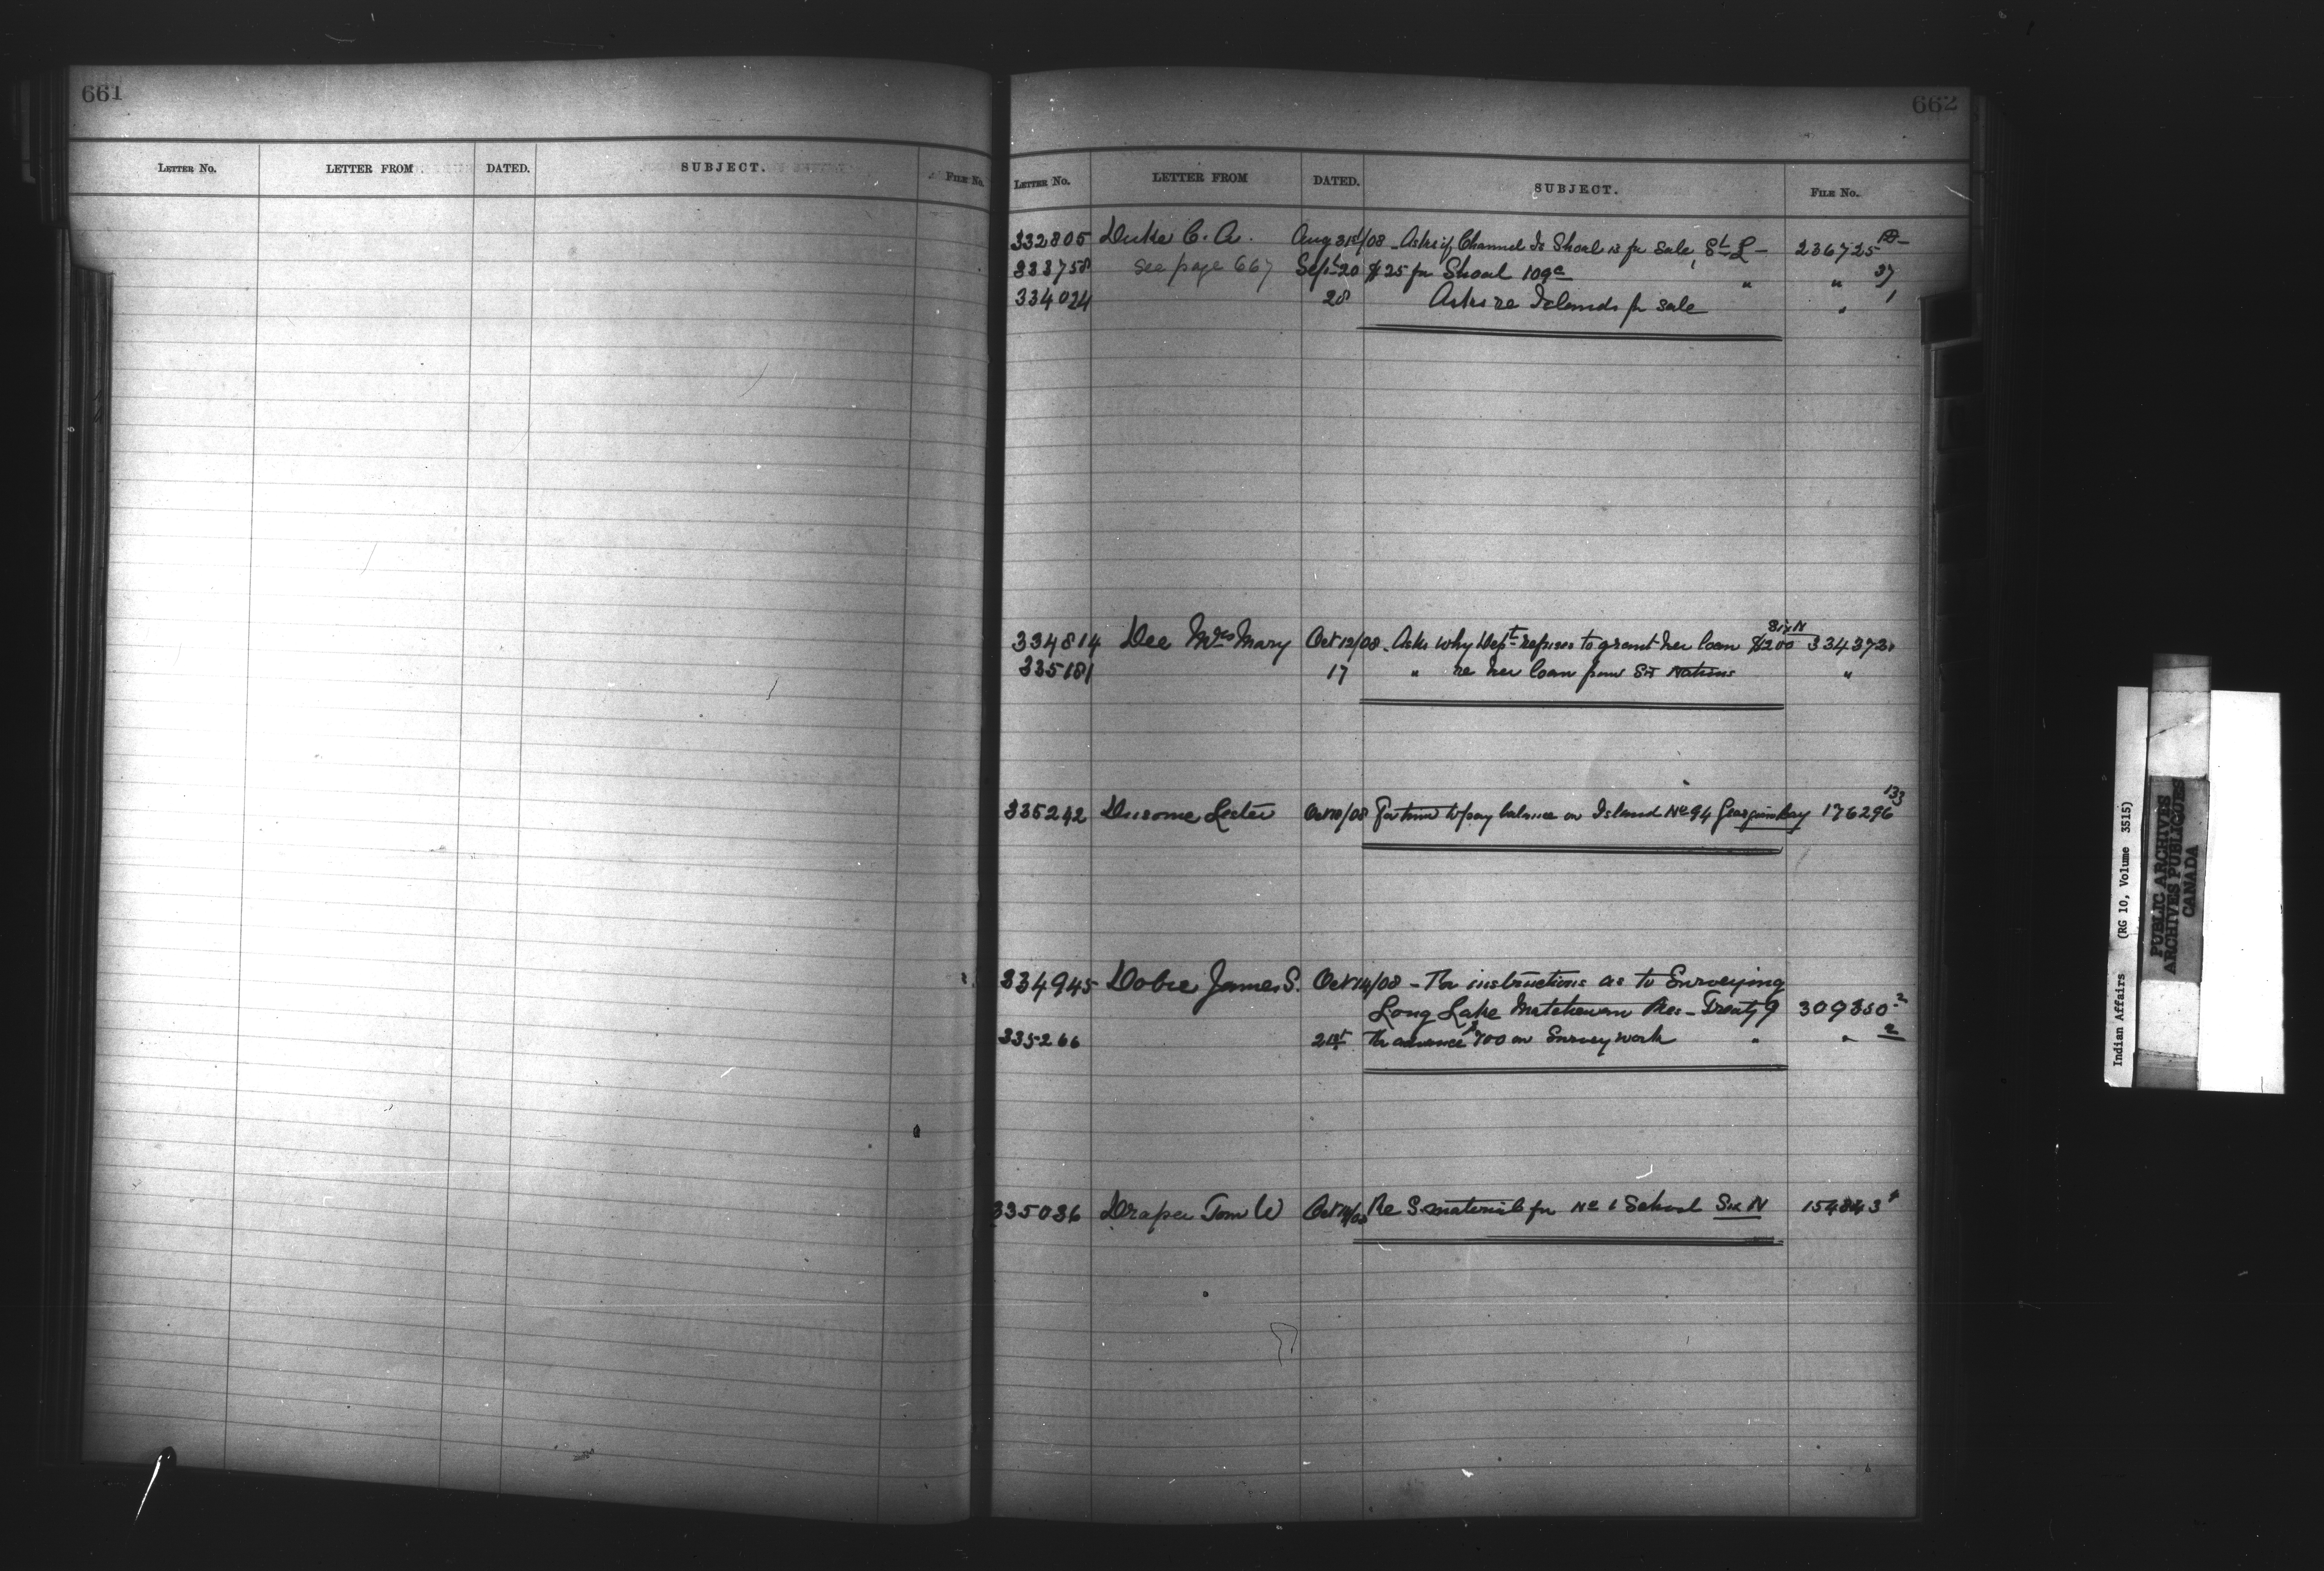 661
LETTER NO. LETTER FROM DATED. SUBJECT. FILE No.
662
LETTER NO. LETTER FROM DATED. SUBJECT. FILE No.
332805 Duke C. A. Aug 31st/08 - Asks if Channel Is Shoal is for sale, St L - 236725
333758 see page 667 Sept 20 $25 for Shoal 109a " " 37
334024 28 Asks re Islands for sale " 1
Six N
334814 Dee Mrs Mary Oct 12/08 - Asks why Dept refuses to grant her loan $200 334373
335181 17 " re her loan from Six Nations "
335242 Dusome Lester Oct /08 For time to pay balance on Island No 94 Georgian Bay 176296 133
334945 Dobie James S. Oct 14/08 - For instructions as to Surveying
Long Lake Matchewan Res - Treaty 9 309350-2
335266 21st For advance $700 on Survey work " " 2
335036 Draper Tom W Oct /08 Re S. material for No 6 School Six N 154843
Indian Affairs (RG 10, Volume 3515)
PUBLIC ARCHIVES
ARCHIVES PUBLIQUES
CANADA